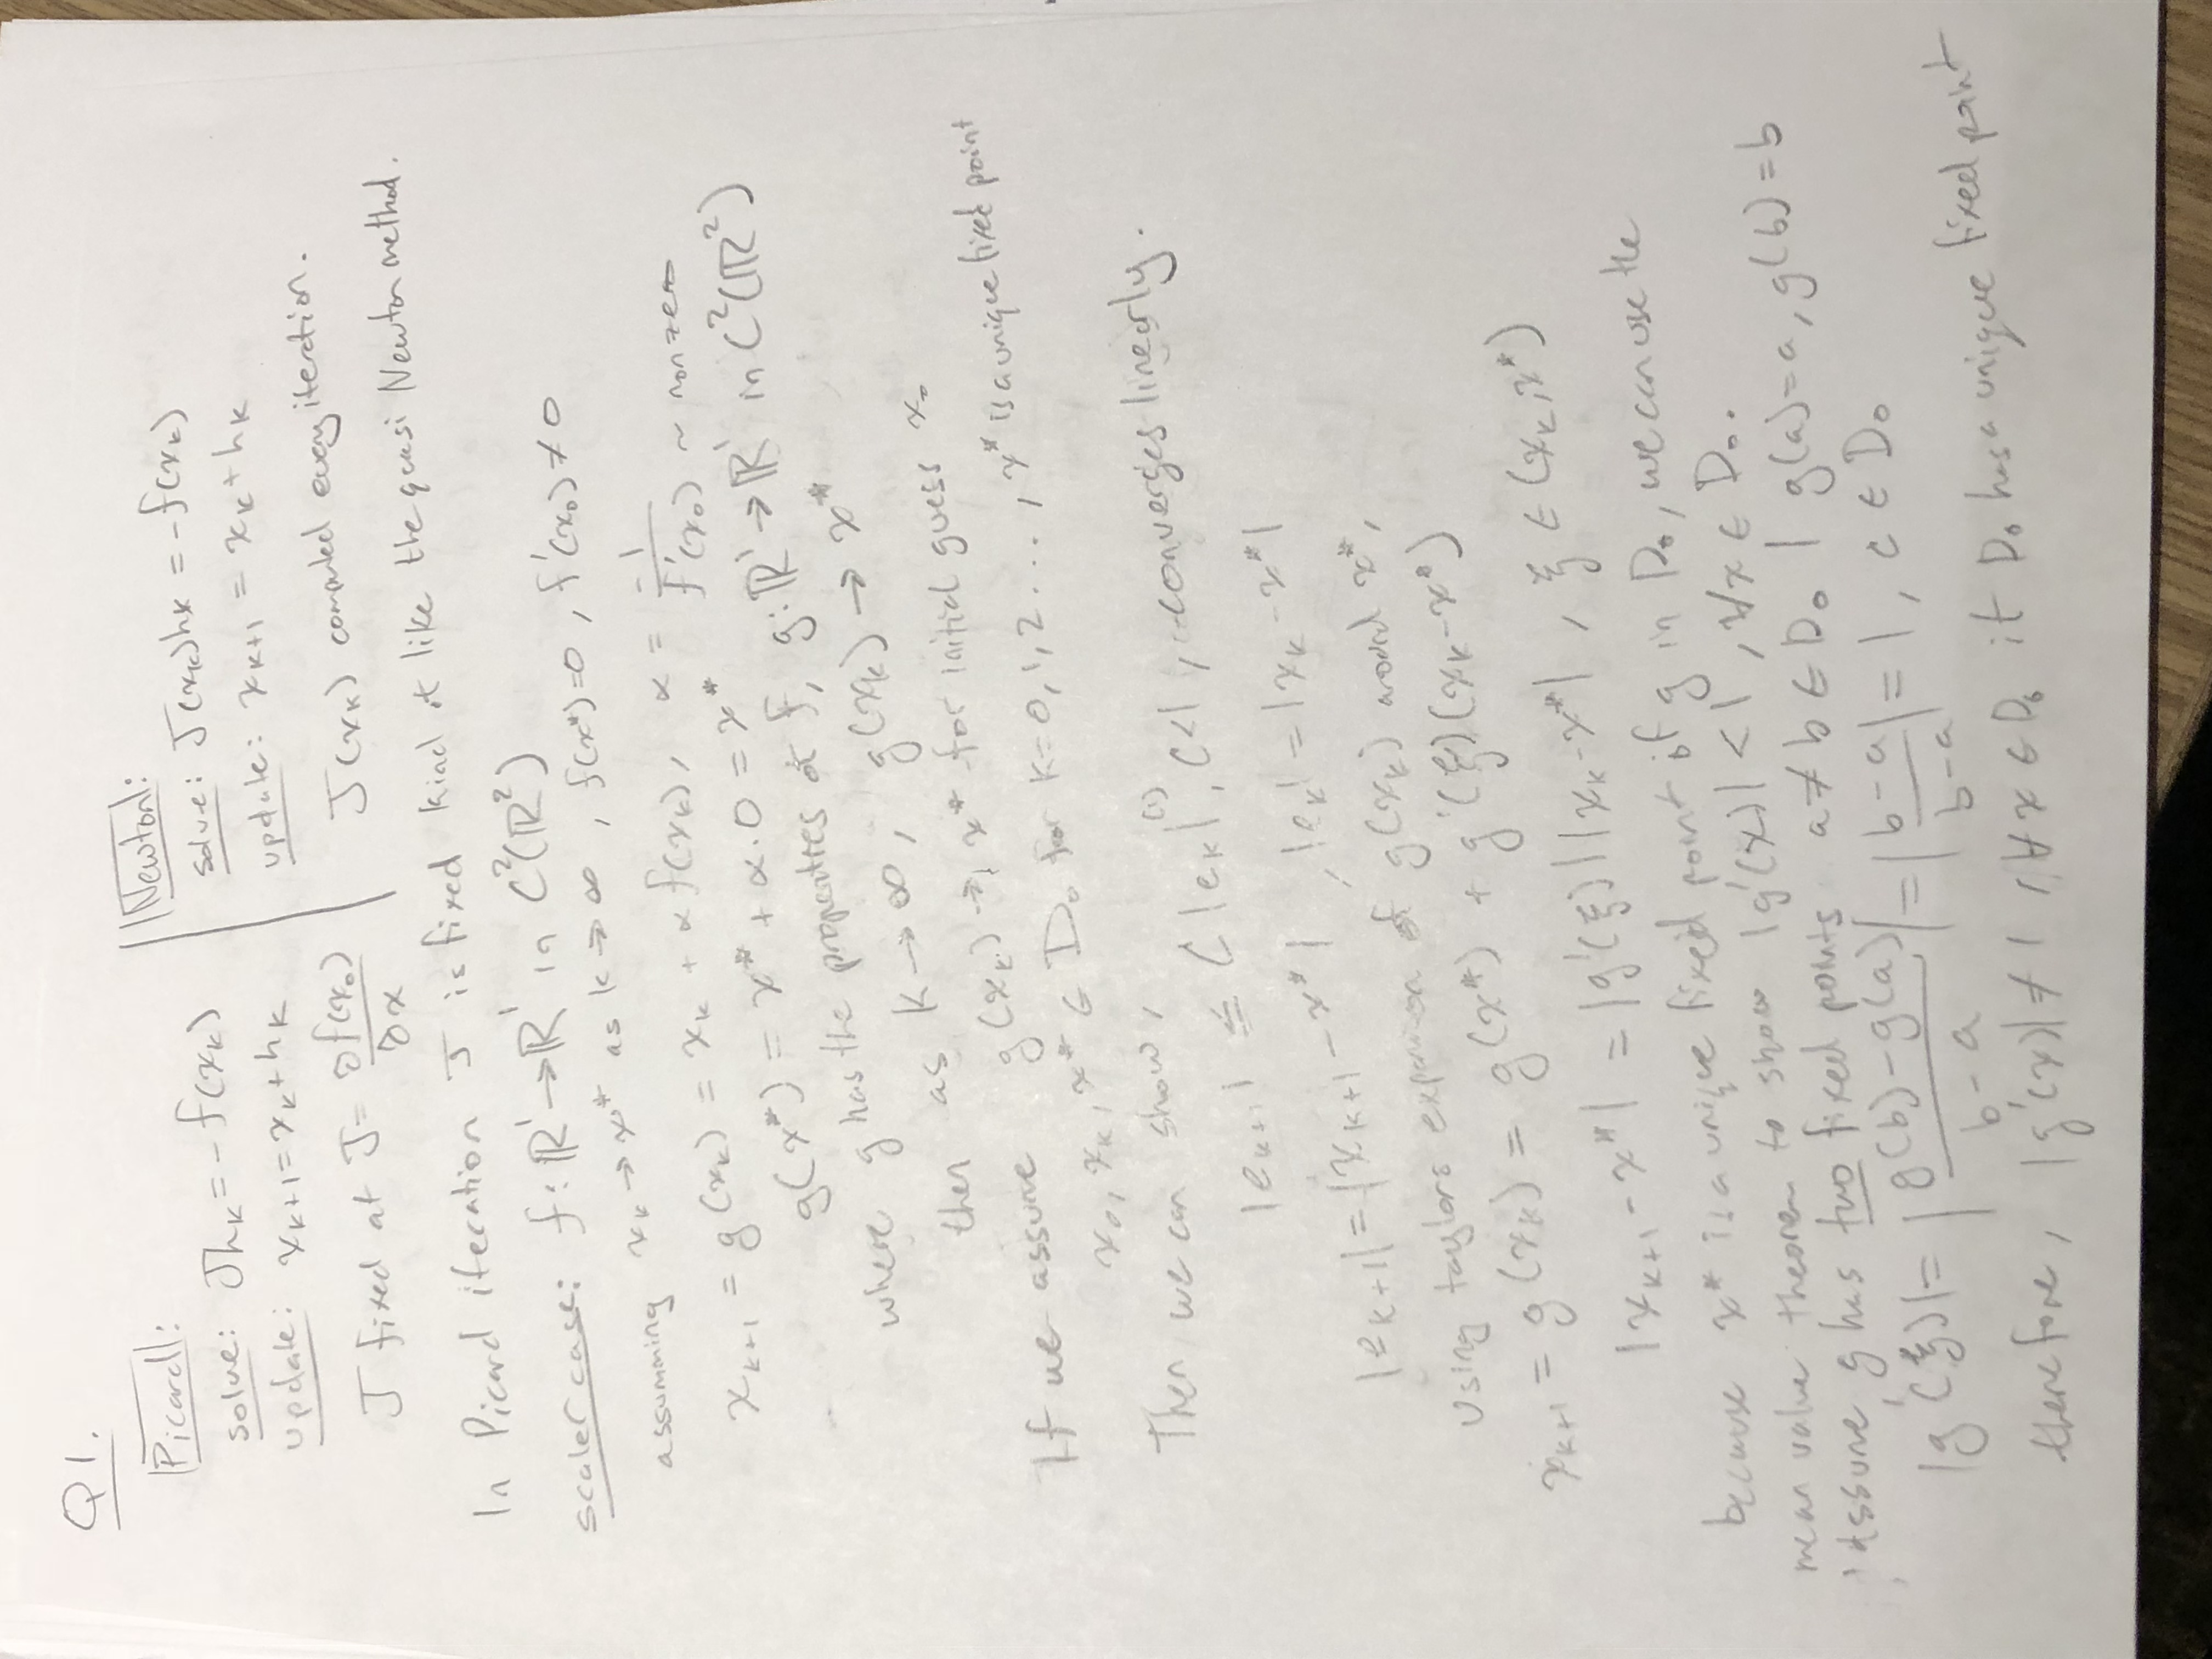 Q1.
Picard:
solve: Jhₖ = -f(xₖ)
update: xₖ₊₁ = xₖ + hₖ
J fixed at J = ∂f(x₀)/∂x
Newton:
solve: J(xₖ)hₖ = -f(xₖ)
update: xₖ₊₁ = xₖ + hₖ
J(xₖ) computed every iteration.
In Picard iteration J is fixed kind of like the quasi Newton method.
scaler case: f: ℝ¹→ℝ¹ in C²(ℝ²)
assumming xₖ → x* as k → ∞, f(x*)=0, f'(x₀) ≠ 0
xₖ₊₁ = g(xₖ) = xₖ + αf(xₖ), α = -1/f'(x₀) ~ nonzero
g(x*) = x* + α·0 = x*
where g has the properties of f, g: ℝ¹→ℝ¹ in C²(ℝ²)
then as k → ∞, g(xₖ) → x*
If we assume g(xₖ) → x* for initial guess x₀
x₀, xₖ, x* ∈ D₀ for k=0,1,2..., x* is a unique fixed point
Then we can show,
|eₖ₊₁| ≤ C|eₖ|⁽¹⁾, C<1, converges linearly.
|eₖ₊₁| = |xₖ₊₁ - x*|, |eₖ| = |xₖ - x*|
Using taylors expansion of g(xₖ) around x*,
xₖ₊₁ = g(xₖ) = g(x*) + g'(ξ)(xₖ - x*)
|xₖ₊₁ - x*| = |g'(ξ)||xₖ - x*|, ξ ∈ (xₖ, x*)
because x* is a unique fixed point of g in D₀, we can use the
mean value theorem to show |g'(x)| < 1, ∀x ∈ D₀.
Assume g has two fixed points a≠b ∈ D₀ | g(a)=a, g(b)=b
|g'(ξ)| = |(g(b)-g(a))/(b-a)| = |(b-a)/(b-a)| = 1, c ∈ D₀
therefore, |g'(x)| ≠ 1, ∀x ∈ D₀ if D₀ has a unique fixed point